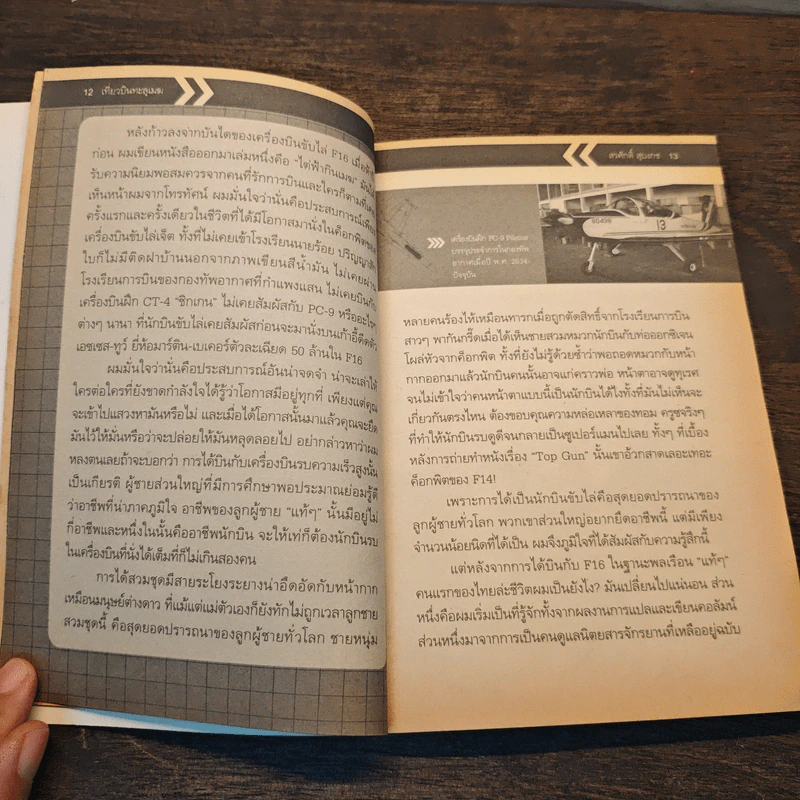 12 เที่ยวบินทะลุเมฆ
หลังก้าวลงจากบันไดของเครื่องบินขับไล่ F16 เมื่อ
ก่อน ผมเขียนหนังสือออกมาเล่มหนึ่งคือ "ไต่ฟ้ากินเมฆ"
รับความนิยมพอสมควรจากคนที่รักการบินและใครก็ตามที่เคย
เห็นหน้าผมจากโทรทัศน์ ผมมั่นใจว่านั่นคือประสบการณ์เพียง
ครั้งแรกและครั้งเดียวในชีวิตที่ได้มีโอกาสมานั่งในค็อกพิตของ
เครื่องบินขับไล่เจ็ต ทั้งที่ไม่เคยเข้าโรงเรียนนายร้อย ปริญญาสัก
ใบก็ไม่มีติดฝาบ้านนอกจากภาพเขียนสีน้ำมัน ไม่เคยผ่าน
โรงเรียนการบินของกองทัพอากาศที่กำแพงแสน ไม่เคยบินกับ
เครื่องบินฝึก CT-4 "ชิกเกน" ไม่เคยสัมผัสกับ PC-9 หรืออะไร
ต่างๆ นานา ที่นักบินขับไล่เคยสัมผัสก่อนจะมานั่งบนเก้าอี้ดีดตัว
เอซเซส-ทูว์ ยี่ห้อมาร์ติน-เบเคอร์ตัวละเฉียด 50 ล้านใน F16
ผมมั่นใจว่านั่นคือประสบการณ์อันน่าจดจำ น่าจะเล่าให้
ใครต่อใครที่ยังขาดกำลังใจได้รู้ว่าโอกาสมีอยู่ทุกที่ เพียงแต่คุณ
จะเข้าไปแสวงหามันหรือไม่ และเมื่อได้โอกาสนั้นมาแล้วคุณจะยึด
มันไว้ให้มั่นหรือว่าจะปล่อยให้มันหลุดลอยไป อย่ากล่าวหาว่าผม
หลงตนเลยถ้าจะบอกว่า การได้บินกับเครื่องบินรบความเร็วสูงนั้น
เป็นเกียรติ ผู้ชายส่วนใหญ่ที่มีการศึกษาพอประมาณย่อมรู้ดี
ว่าอาชีพที่น่าภาคภูมิใจ อาชีพของลูกผู้ชาย "แท้ๆ" นั้นมีอยู่ไม่
กี่อาชีพและหนึ่งในนั้นคืออาชีพนักบิน จะให้เท่ก็ต้องนักบินรบ
ในเครื่องบินที่นั่งได้เต็มที่ก็ไม่เกินสองคน
การได้สวมชุดมีสายระโยงระยางน่าอึดอัดกับหน้ากาก
เหมือนมนุษย์ต่างดาว ที่แม้แต่แม่ตัวเองก็ยังทักไม่ถูกเวลาลูกชาย
สวมชุดนี้ คือสุดยอดปรารถนาของลูกผู้ชายทั่วโลก ชายหนุ่ม
สรศักดิ์ สุบงกช 13
เครื่องบินฝึก PC-9 Pilatus
บรรจุประจำการในกองทัพ
อากาศเมื่อปี พ.ศ. 2534-
ปัจจุบัน
13
หลายคนร้องไห้เหมือนทารกเมื่อถูกตัดสิทธิ์จากโรงเรียนการบิน
สาวๆ พากันกรี๊ดเมื่อได้เห็นชายสวมหมวกนักบินกับท่อออกซิเจน
โผล่หัวจากค็อกพิต ทั้งที่ยังไม่รู้ด้วยซ้ำว่าพอถอดหมวกกับหน้า
กากออกมาแล้วนักบินคนนั้นอาจแก่คราวพ่อ หน้าตาอาจดูทุเรศ
จนไม่เข้าใจว่าคนหน้าตาแบบนี้เป็นนักบินได้ไงทั้งที่มันไม่เห็นจะ
เกี่ยวกันตรงไหน ต้องขอบคุณความหล่อเหลาของทอม ครูซจริงๆ
ที่ทำให้นักบินรบดูดีจนกลายเป็นซูเปอร์แมนไปเลย ทั้งๆ ที่เบื้อง
หลังการถ่ายทำหนังเรื่อง "Top Gun" นั้นเขาอ้วกสาดเลอะเทอะ
ค็อกพิตของ F14!
เพราะการได้เป็นนักบินขับไล่คือสุดยอดปรารถนาของ
ลูกผู้ชายทั่วโลก พวกเขาส่วนใหญ่อยากยึดอาชีพนี้ แต่มีเพียง
จำนวนน้อยนิดที่ได้เป็น ผมจึงภูมิใจที่ได้สัมผัสกับความรู้สึกนี้
แต่หลังจากการได้บินกับ F16 ในฐานะพลเรือน "แท้ๆ"
คนแรกของไทยล่ะชีวิตผมเป็นยังไง? มันเปลี่ยนไปแน่นอน ส่วน
หนึ่งคือผมเริ่มเป็นที่รู้จักทั้งจากผลงานการแปลและเขียนคอลัมน์
ส่วนหนึ่งมาจากการเป็นคนดูแลนิตยสารจักรยานที่เหลืออยู่ฉบับ